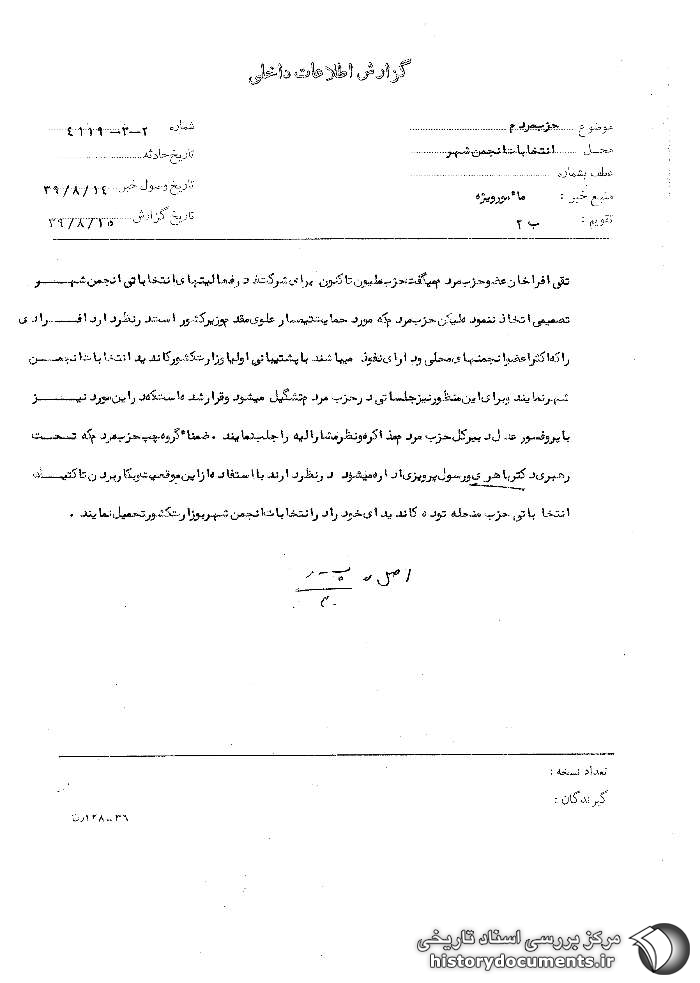 گزارش اطلاعات داخلی
موضوع حزب مردم
شماره ۲-۳-۴۱۱۹
محل انتخابات انجمن شهر
تاریخ حادثه
عطف بشماره
تاریخ وصول خبر ۳۹/۸/۱۴
منبع خبر : مأمور ویژه
تاریخ گزارش ۳۹/۸/۱۵
تقویم : ب ۲
تقی افراخان عضو حزب مردم میگفت حزب ملیون تاکنون برای شرکت در فعالیتهای انتخاباتی انجمن شهر
تصمیمی اتخاذ ننموده لیکن حزب مردم که مورد حمایت تیمسار علوی مقدم وزیر کشور است در نظر دارد افرادی
را که اکثرا عضو انجمنهای محلی و دارای نفوذ میباشند با پشتیبانی اولیا وزارت کشور کاندید انتخابات انجمن
شهر نمایند و برای این منظور نیز جلساتی در حزب مردم تشگیل میشود و قرار شده است که در این مورد نیز
با پروفسور عدل دبیر کل حزب مردم مذاکره و نظر مشارالیه را جلب نمایند . ضمنا گروه چپ حزب مردم که تحت
رهبری دکتر باهری و رسول پرویزی اداره میشود در نظر دارند با استفاده از این موقعیت و بکار بردن تاکتیک
انتخاباتی حزب منحله توده کاندیدای خود را در انتخابات انجمن شهر بوزارت کشور تحمیل نمایند .
اصل در
تعداد نسخه :
گیرندگان :
مرکز بررسی اسناد تاریخی
historydocuments.ir